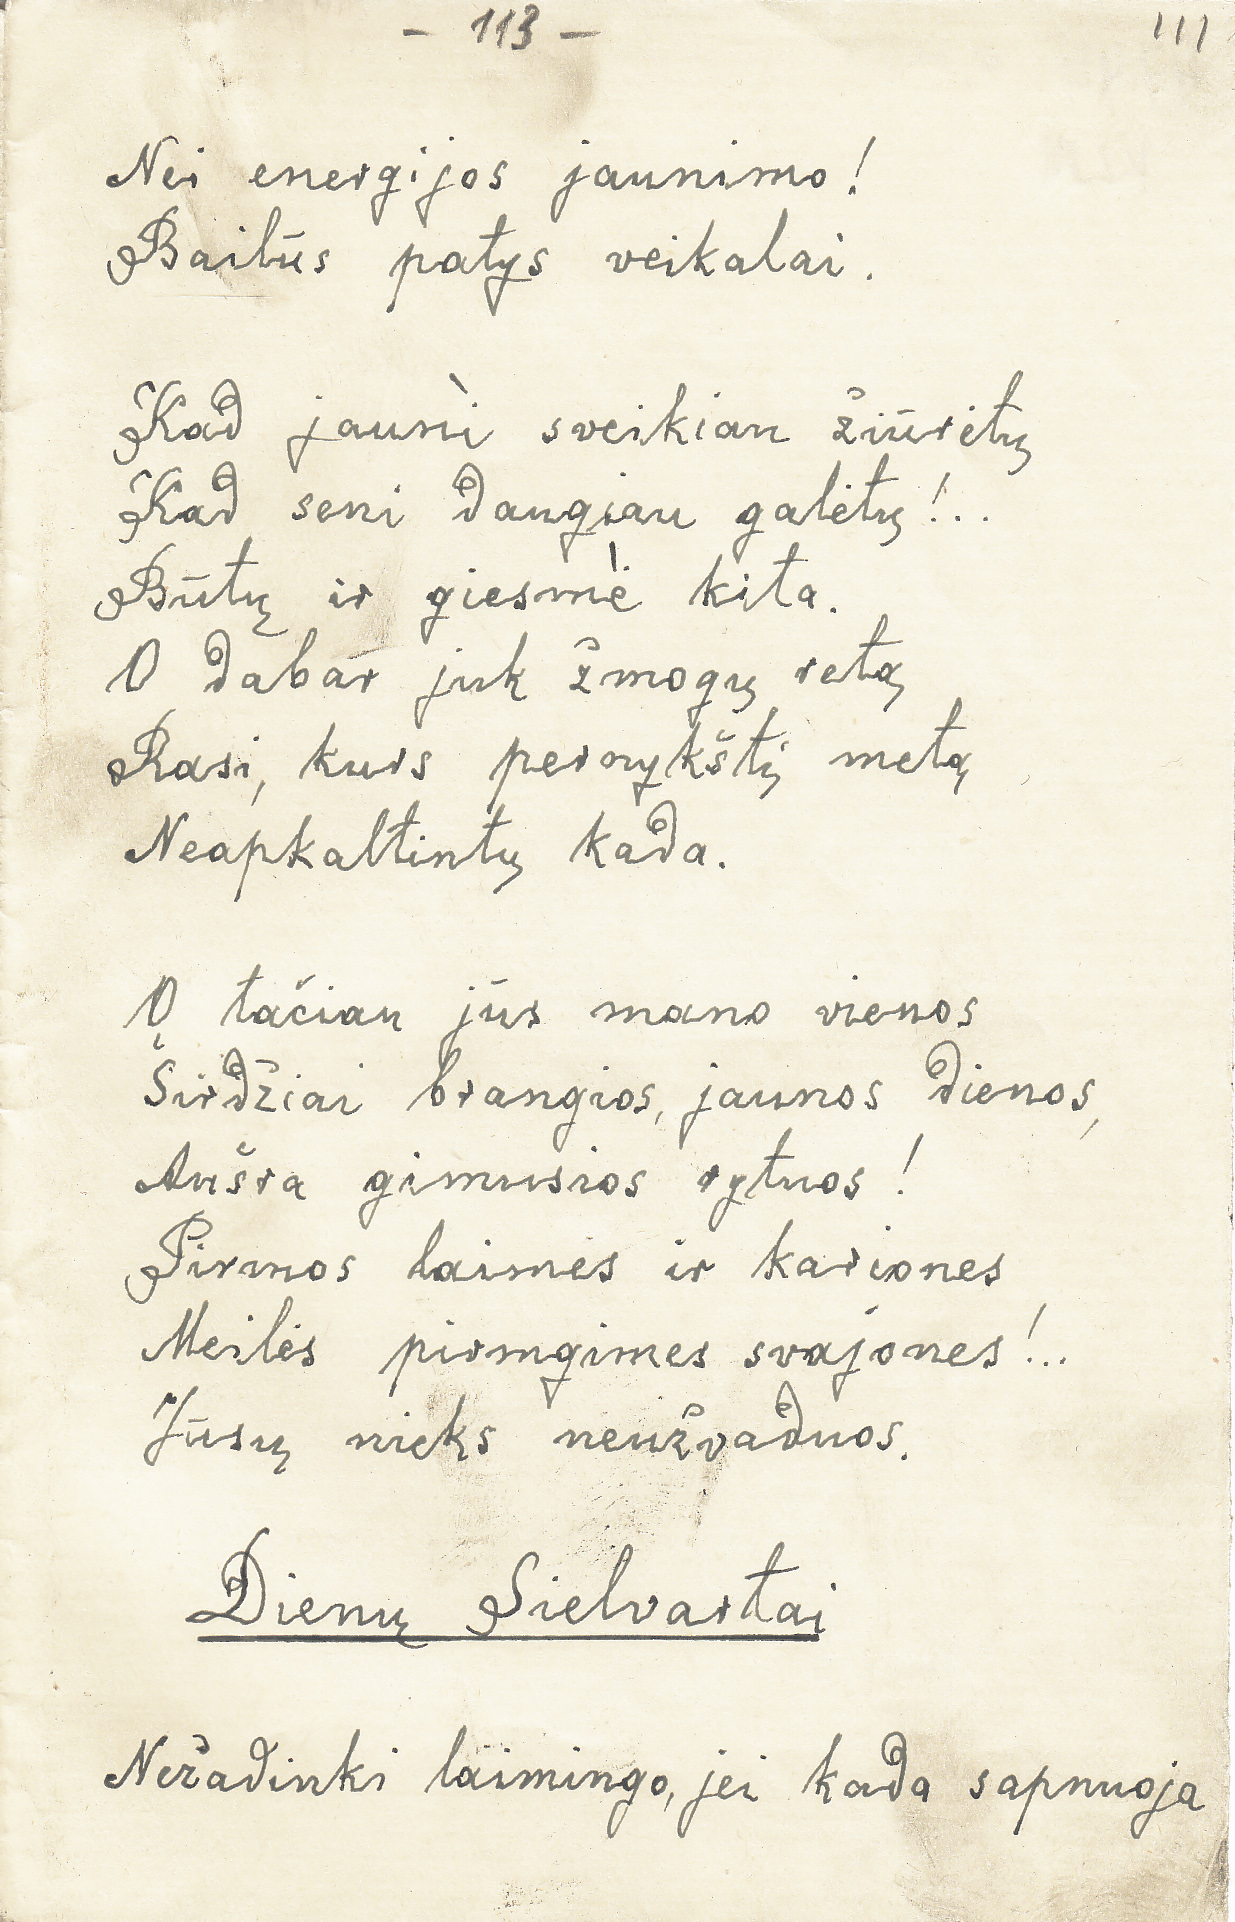 - 113 -
111
Nei energijos jaunimo!
Bailūs patys veikalai.
Kad jauni sveikiau žiūrėtų
Kad seni daugiau galėtų!..
Būtų ir giesmė kita.
O dabar juk žmogų retą
Rasi, kurs pernykštį metą
Neapkaltintų kada.
O tačiau jūs mano vienos
Širdžiai brangios, jaunos dienos,
Aušra gimusios rytuos!
Pirmos laimės ir karionės
Meilės pirmgimės svajonės!..
Jūsų nieks neužvaduos.
Dienų Sielvartai
Nežadinki laimingo, jei kada sapnuoja